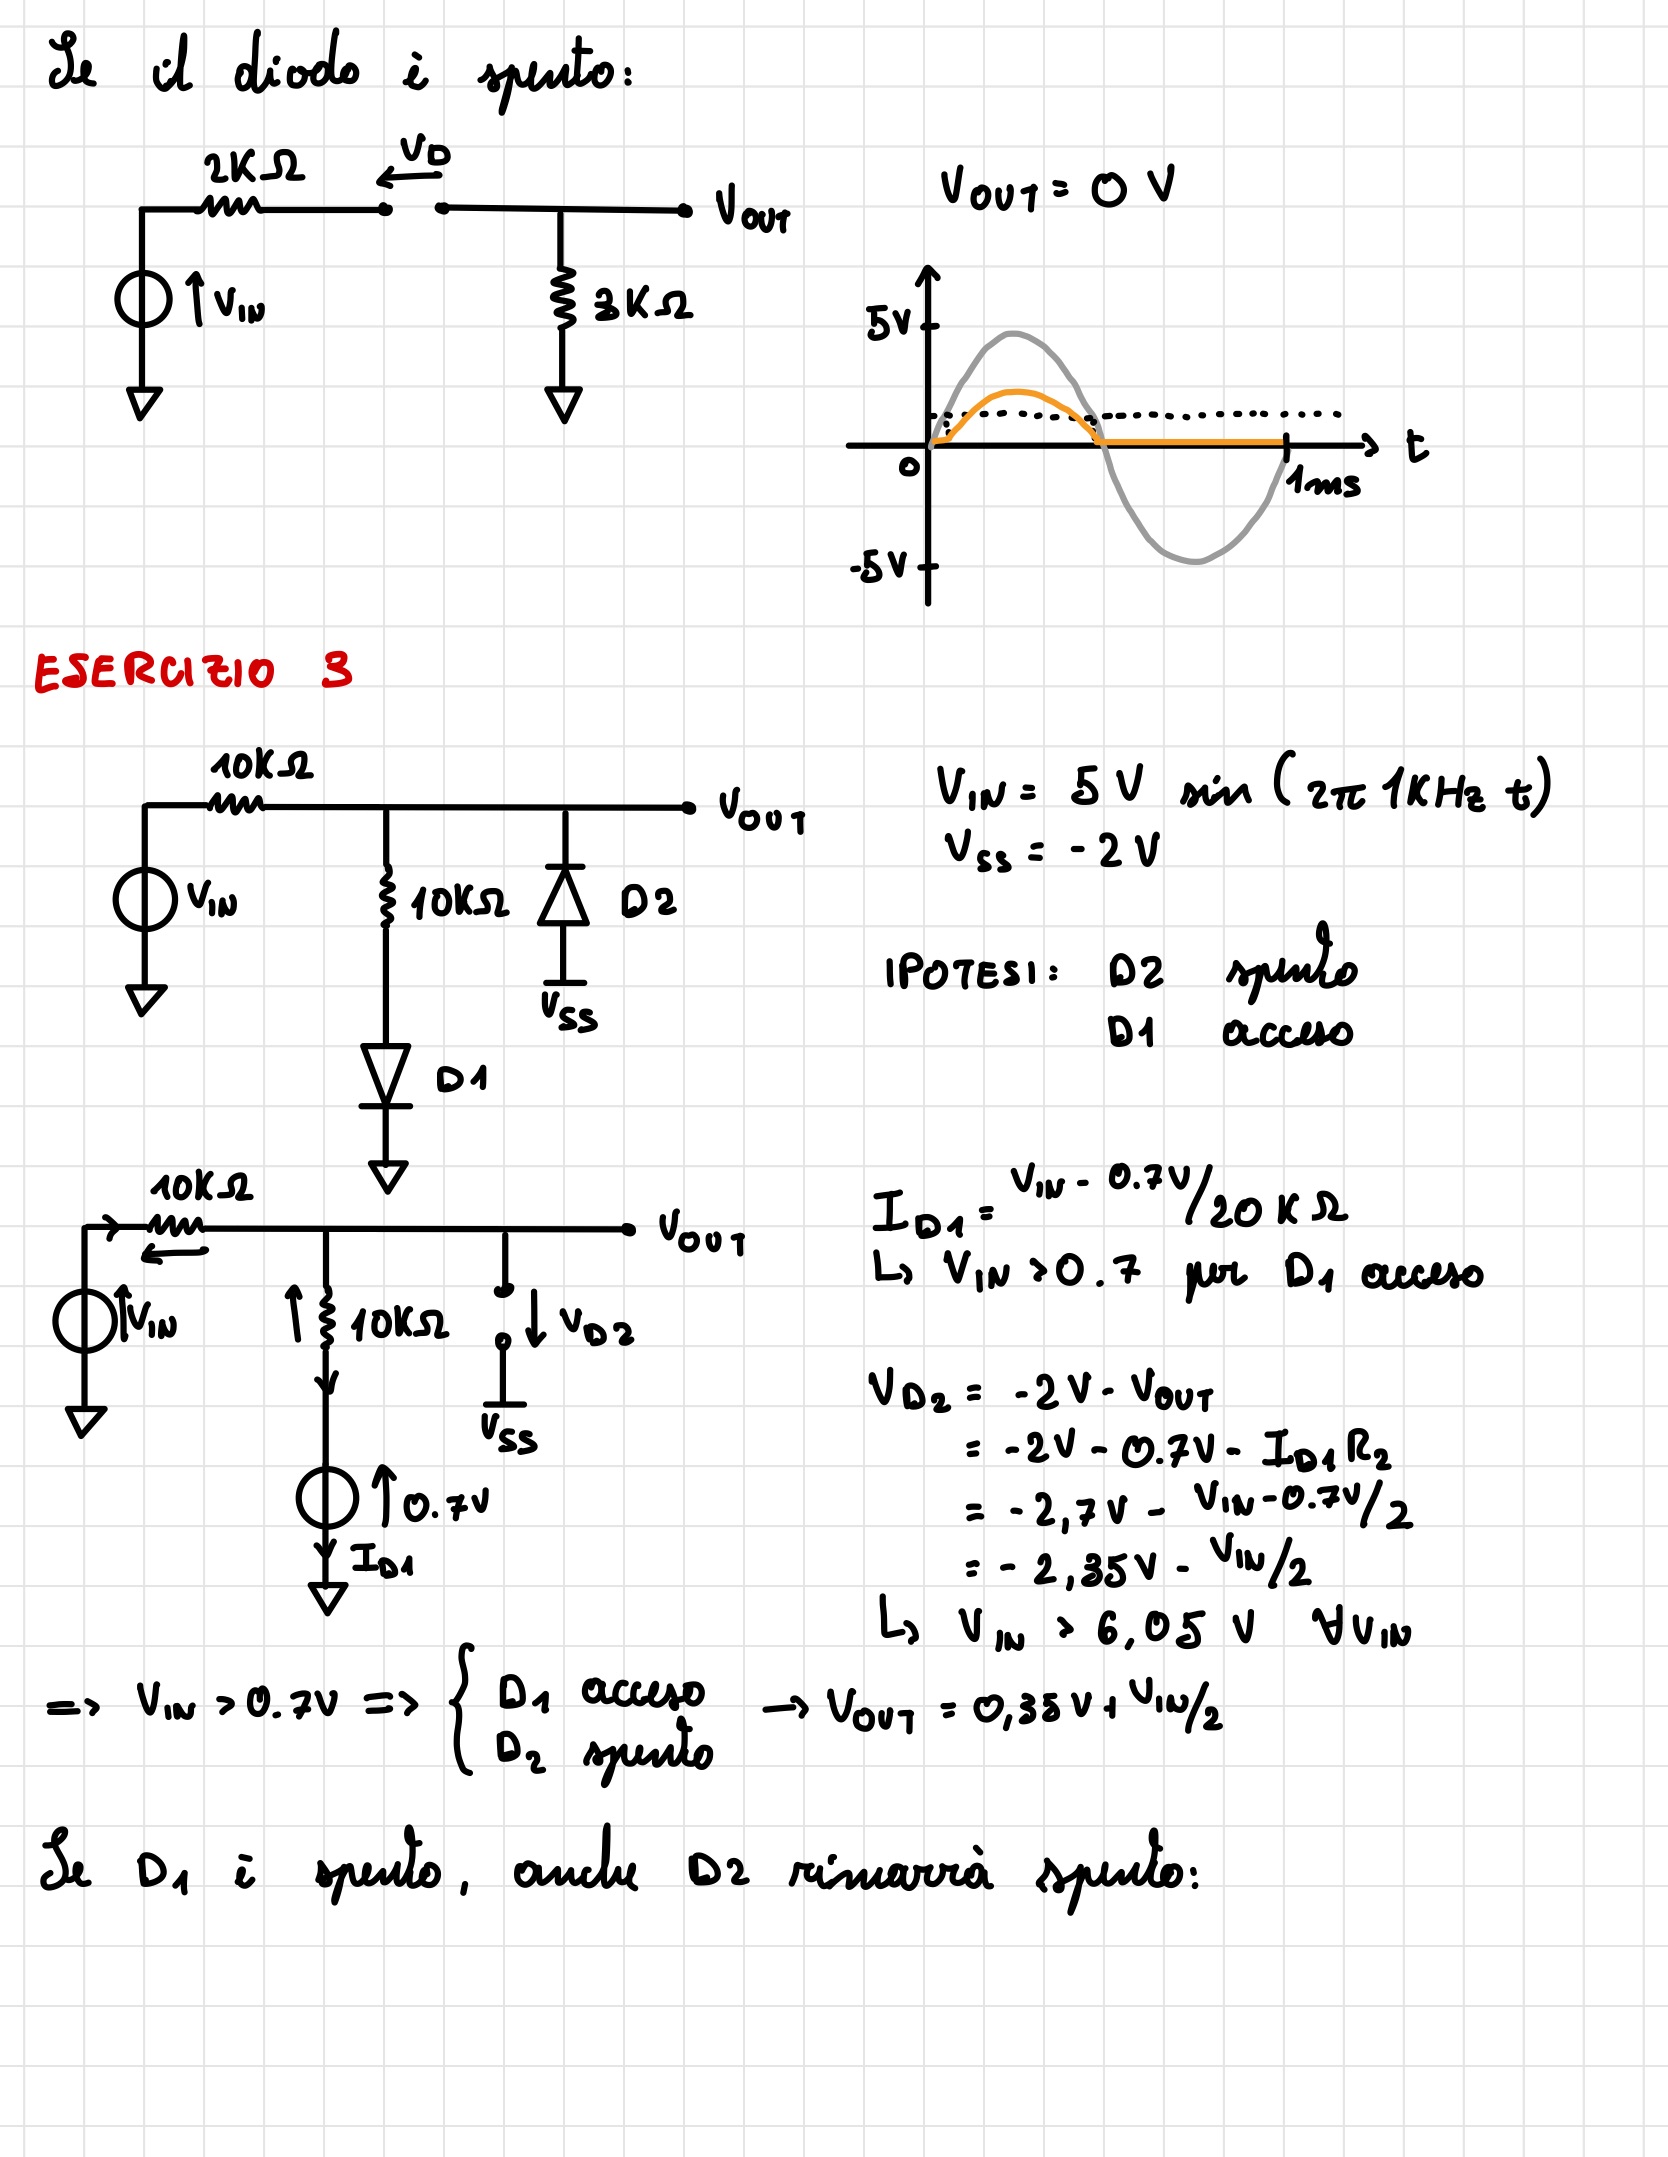 Se il diodo è spento:
2KΩ
VD
VOUT
VIN
3KΩ
VOUT = 0 V
5V
0
t
1ms
-5V
ESERCIZIO 3
10KΩ
VOUT
VIN
10KΩ
D2
VSS
D1
VIN = 5 V sin (2π 1KHz t)
VSS = -2V
IPOTESI: D2 spento
D1 acceso
10KΩ
VOUT
VIN
10KΩ
VD2
VSS
0.7V
ID1
ID1 = VIN - 0.7V/20KΩ
↳ VIN > 0.7 per D1 acceso
VD2 = -2V - VOUT
= -2V - 0.7V - ID1 R2
= -2,7V - VIN-0.7V/2
= -2,35V - VIN/2
↳ VIN > 6,05 V ∀VIN
=> VIN > 0.7V => { D1 acceso
D2 spento
→ VOUT = 0,35V + VIN/2
Se D1 è spento, anche D2 rimarrà spento: